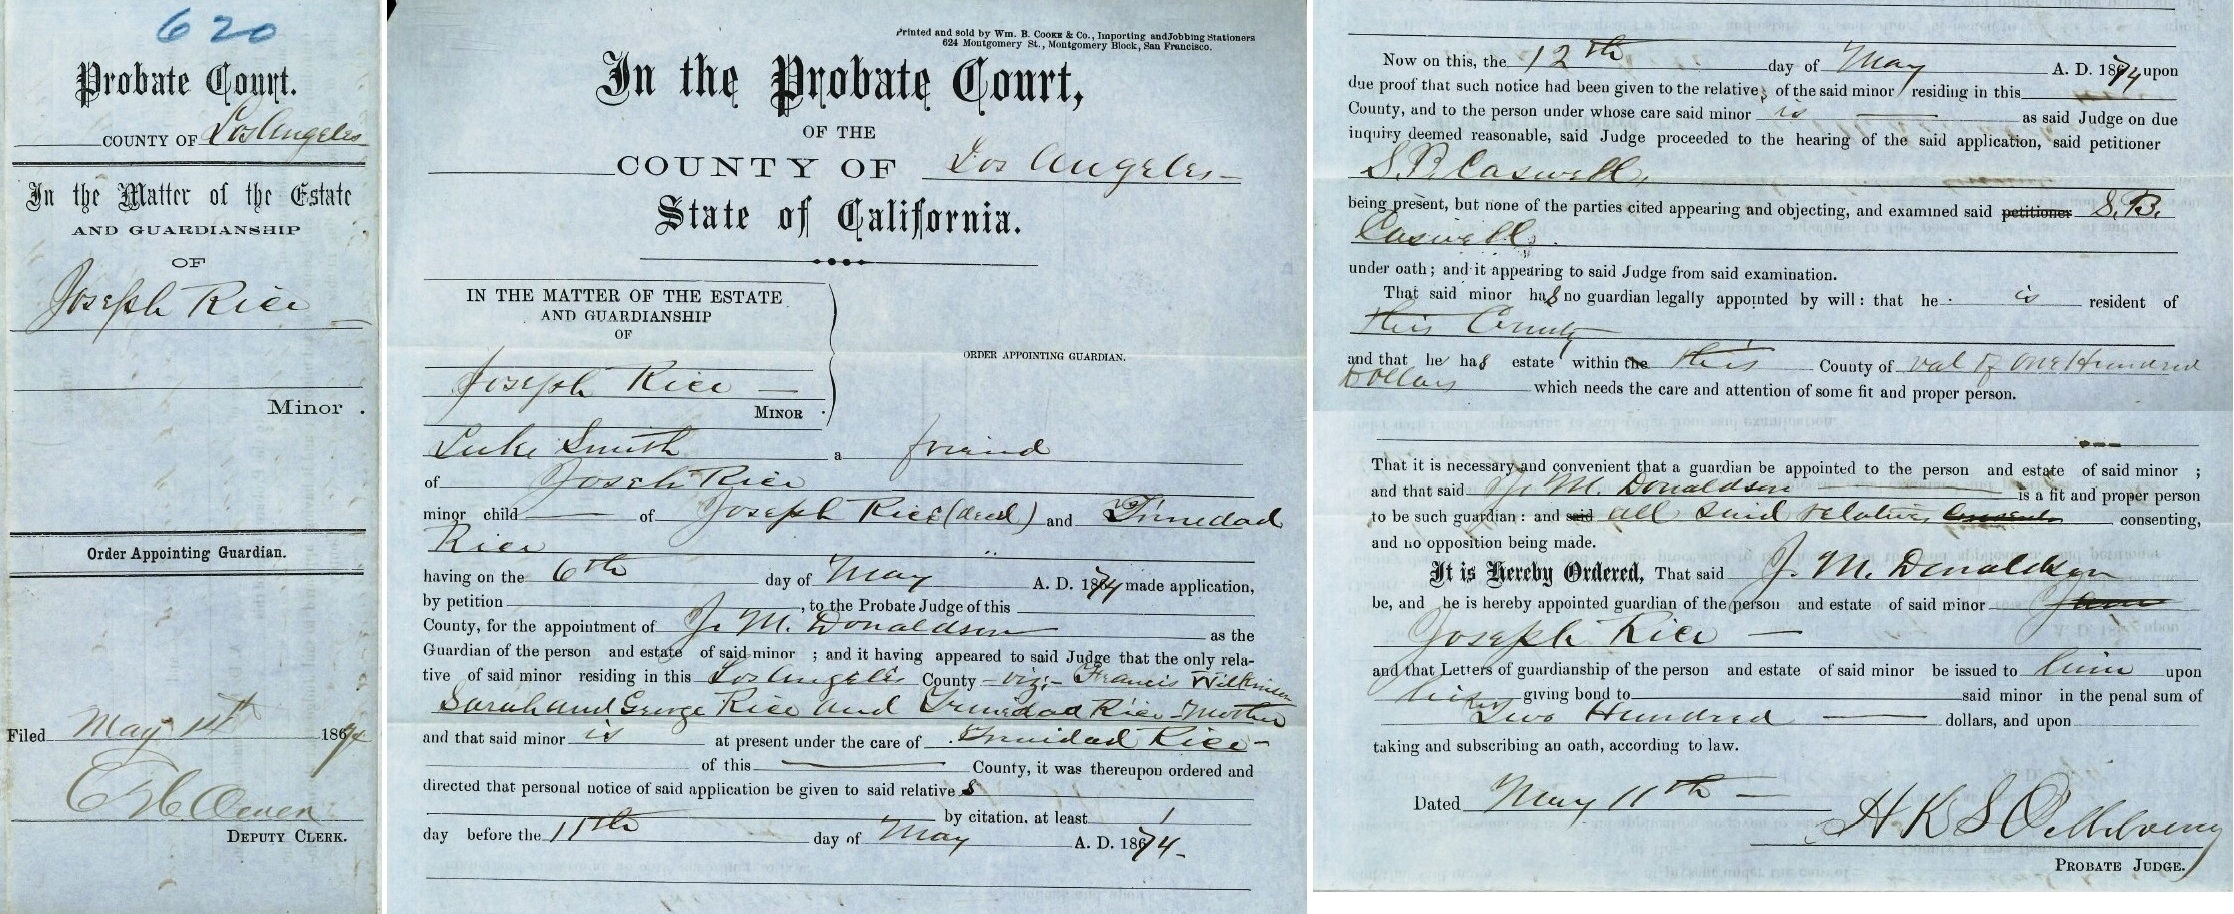 620
Probate Court.
COUNTY OF Los Angeles
In the Matter of the Estate
AND GUARDIANSHIP
OF
Joseph Rice
Minor .
Order Appointing Guardian.
Filed May 1st 1874
Owen
DEPUTY CLERK.
Printed and sold by WM. B. COOKE & Co., Importing and Jobbing Stationers
624 Montgomery St., Montgomery Block, San Francisco.
In the Probate Court,
OF THE
COUNTY OF Los Angeles
State of California.
IN THE MATTER OF THE ESTATE
AND GUARDIANSHIP
OF
ORDER APPOINTING GUARDIAN.
Joseph Rice
MINOR .
Luke Smith a friend
of Joseph Rice
minor child of Joseph Rice (decd) and Trinedad
Rice
having on the 6th day of May A. D. 1874 made application,
by petition , to the Probate Judge of this
County, for the appointment of J. M. Donaldson as the
Guardian of the person and estate of said minor ; and it having appeared to said Judge that the only rela-
tive of said minor residing in this Los Angeles County - viz:- Francis Wilkinson
Sarah and George Rice and Trinedad Rice - Mother
and that said minor is at present under the care of Trinidad Rice -
of this County, it was thereupon ordered and
directed that personal notice of said application be given to said relative s
by citation, at least 1
day before the 11th day of May A. D. 1874 -
Now on this, the 12th day of May A. D. 1874 upon
due proof that such notice had been given to the relative s of the said minor residing in this
County, and to the person under whose care said minor is as said Judge on due
inquiry deemed reasonable, said Judge proceeded to the hearing of the said application, said petitioner
S. B. Caswell,
being present, but none of the parties cited appearing and objecting, and examined said petitioner S. B.
Caswell.
under oath ; and it appearing to said Judge from said examination.
That said minor has no guardian legally appointed by will : that he is resident of
this County
and that he has estate within the this County of val of One Hundred
Dollars which needs the care and attention of some fit and proper person.
That it is necessary and convenient that a guardian be appointed to the person and estate of said minor ;
and that said J. M. Donaldson is a fit and proper person
to be such guardian : and said all said relatives consenting,
and no opposition being made.
It is Hereby Ordered, That said J. M. Donaldson
be, and he is hereby appointed guardian of the person and estate of said minor
Joseph Rice -
and that Letters of guardianship of the person and estate of said minor be issued to him upon
his giving bond to said minor in the penal sum of
Two Hundred dollars, and upon
taking and subscribing an oath, according to law.
Dated May 11th -
H K S O'Melveny
PROBATE JUDGE.